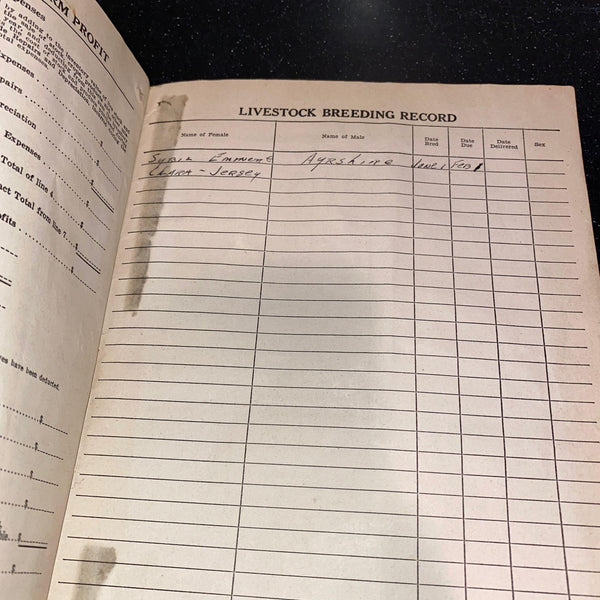 xpenses
RM PROFIT
by adding to the inventory
Expenses
pairs
preciation
Expenses
Total of line 4
act Total from line 7
ofits
ves have been deducted.
LIVESTOCK BREEDING RECORD
Name of Female Name of Male Date Bred Date Due Date Delivered Sex
Sybil Ayrshire June 1 Feb 1
Clara - Jersey